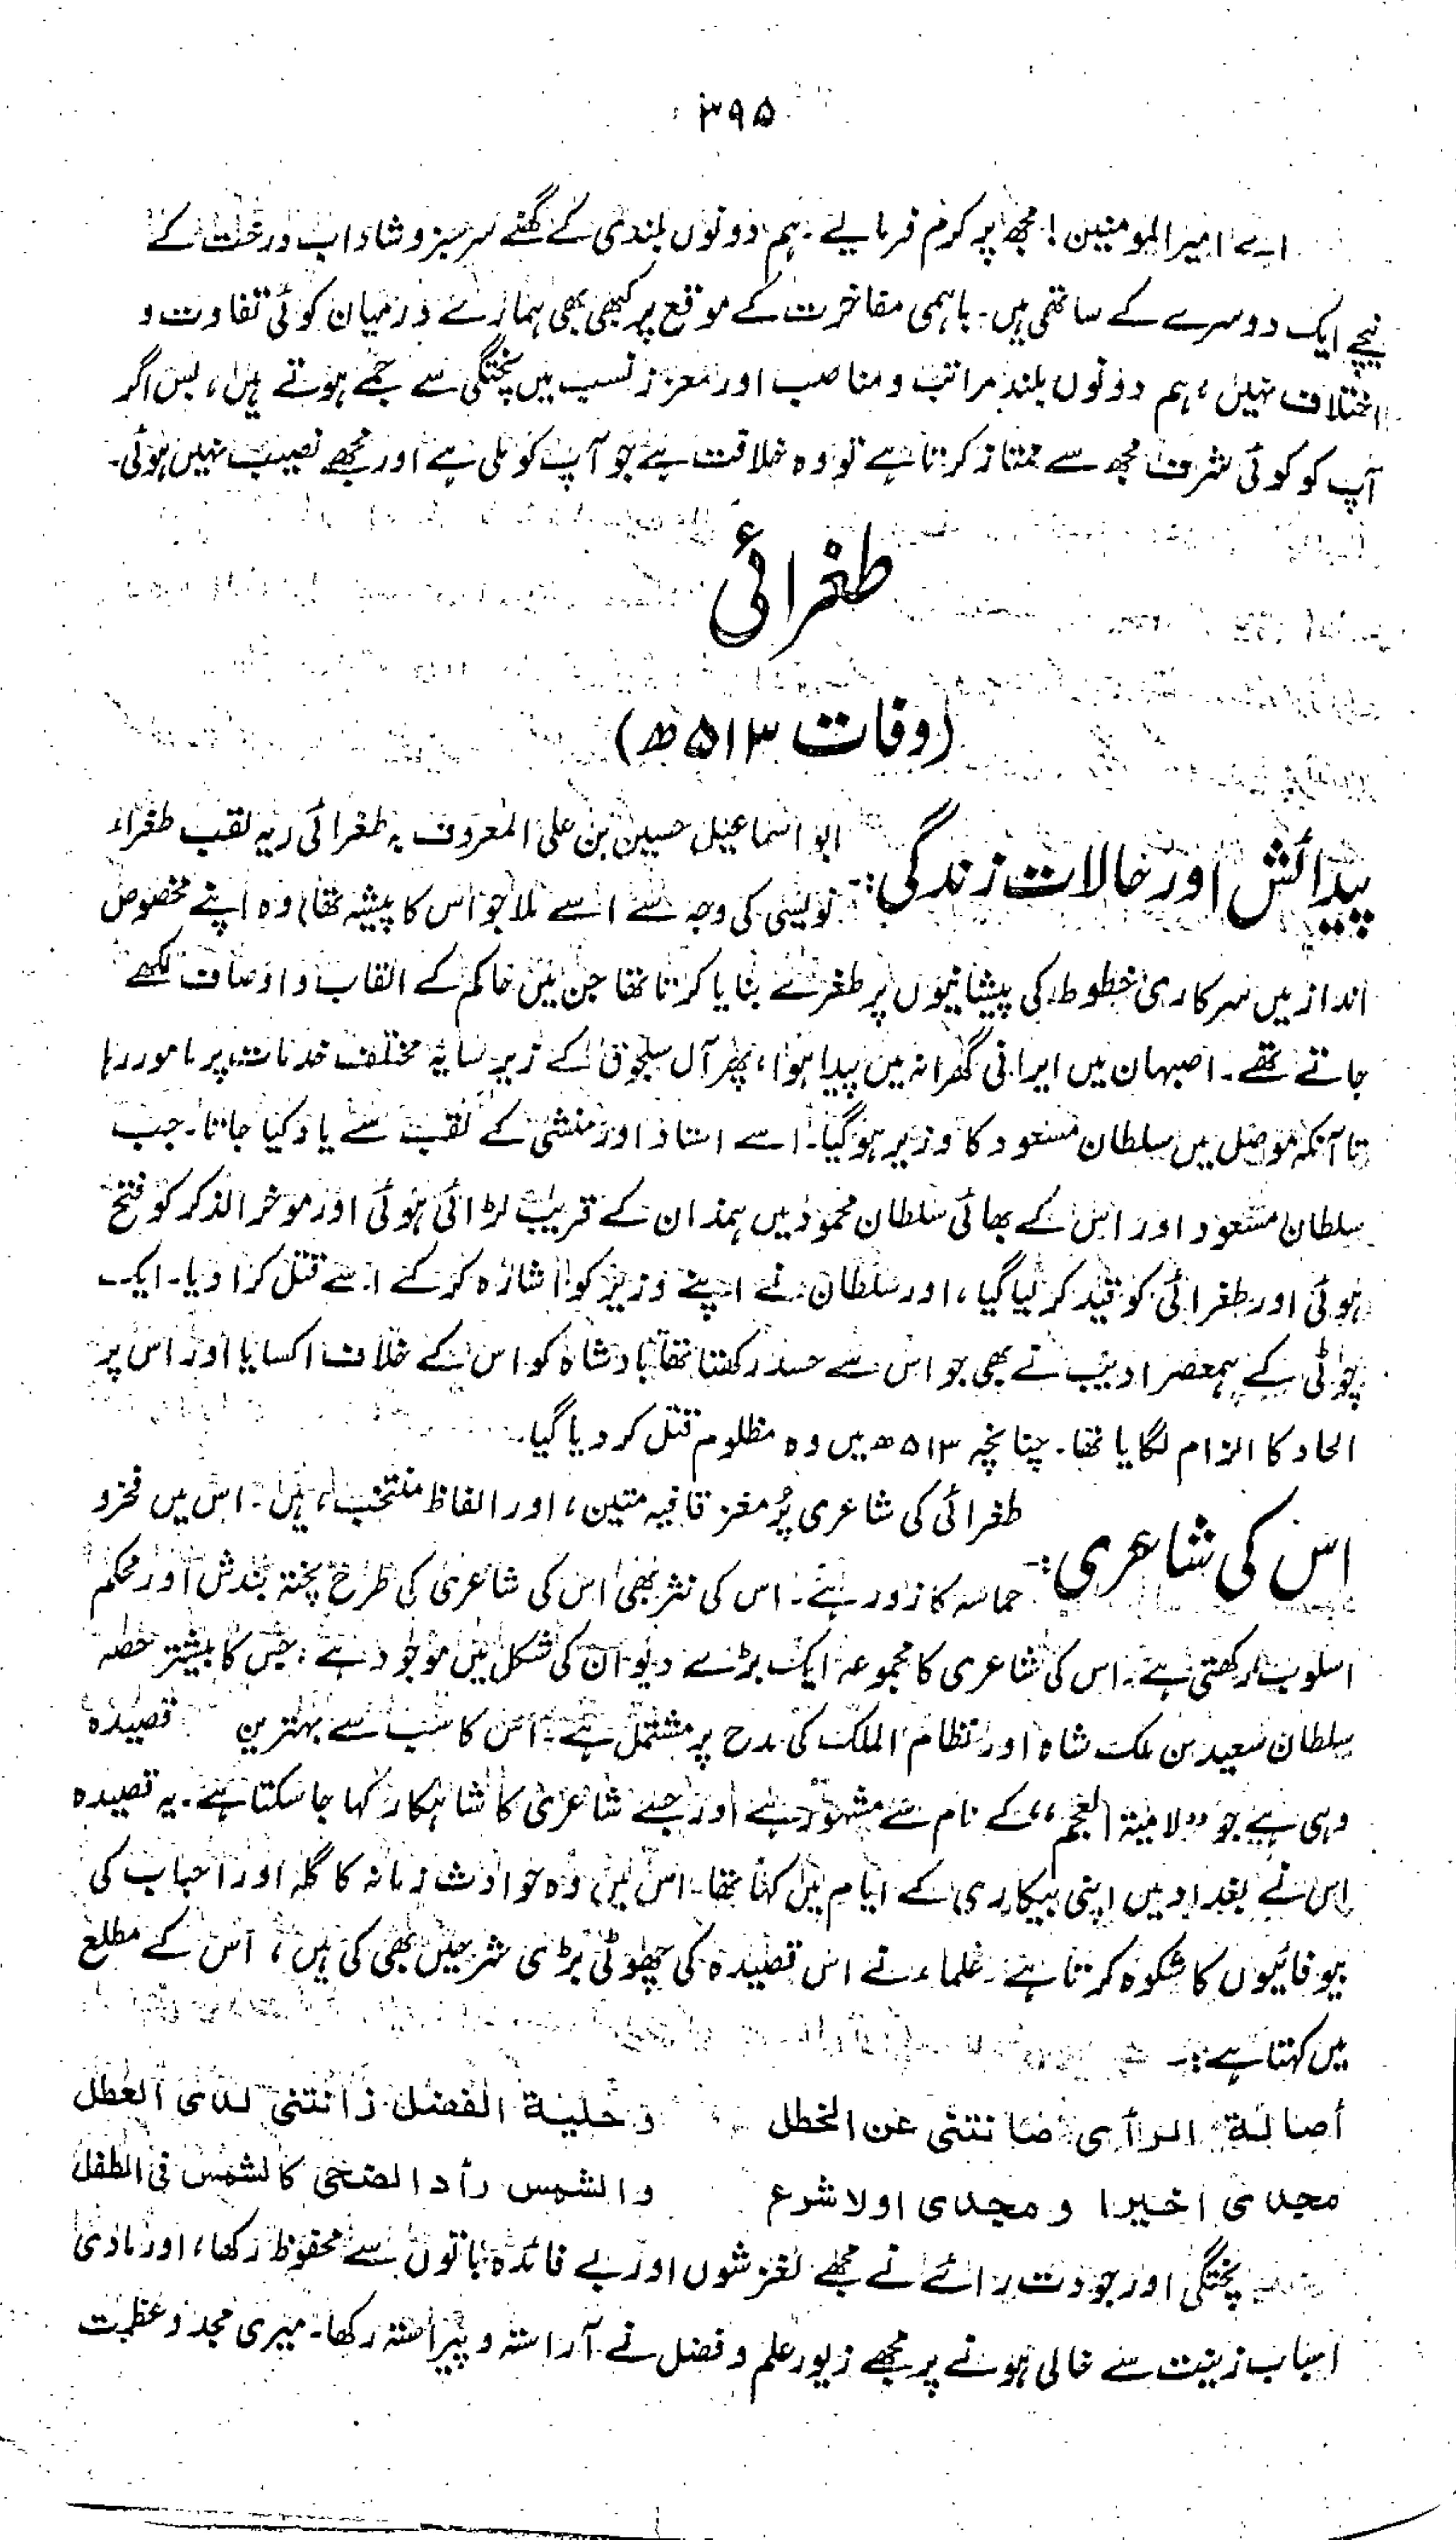 ۳۹۵
اے امیر المومنین! مجھ پر کرم فرمایے۔ ہم دونوں بلندی کے گھنے سرسبز و شاداب درخت کے
نیچے ایک دوسرے کے ساتھی ہیں۔ باہمی مفاخرت کے موقع پر کبھی بھی ہمارے درمیان کوئی تفاوت و
اختلاف نہیں، ہم دونوں بلند مراتب و مناصب اور معزز نسب میں پختگی سے جمے ہوتے ہیں، بس اگر
آپ کو کوئی شرف مجھ سے ممتاز کرتا ہے تو وہ خلافت ہے جو آپ کو ملی ہے اور مجھے نصیب نہیں ہوئی۔
طغرائی
(وفات ۵۱۳ھ)
پیدائش اور حالات زندگی:۔ ابو اسماعیل حسین بن علی المعروف بہ طغرائی (یہ لقب طغراء
نویسی کی وجہ سے اسے ملا جو اس کا پیشہ تھا) وہ اپنے مخصوص
انداز میں سرکاری خطوط کی پیشانیوں پر طغرے بنایا کرتا تھا جن میں حاکم کے القاب و اوصاف لکھے
جاتے تھے۔ اصبہان میں ایرانی گھرانہ میں پیدا ہوا، پھر آل سلجوق کے زیر سایہ مختلف خدمات پر مامور رہا
تا آنکہ موصل میں سلطان مسعود کا وزیر ہو گیا۔ اسے استاذ اور منشی کے لقب سے یاد کیا جاتا۔ جب
سلطان مسعود اور اس کے بھائی سلطان محمود میں ہمذان کے قریب لڑائی ہوئی اور موخر الذکر کو فتح
ہوئی اور طغرائی کو قید کر لیا گیا، اور سلطان نے اپنے وزیر کو اشارہ کر کے اسے قتل کرا دیا۔ ایک
چوٹی کے ہمعصر ادیب نے بھی جو اس سے حسد رکھتا تھا بادشاہ کو اس کے خلاف اکسایا اور اس پر
الحاد کا الزام لگایا تھا۔ چنانچہ ۵۱۳ھ میں وہ مظلوم قتل کر دیا گیا۔
اس کی شاعری:۔ طغرائی کی شاعری پُر مغز قافیہ متین، اور الفاظ منتخب ہیں۔ اس میں فخر و
حماسہ کا زور ہے۔ اس کی نثر بھی اس کی شاعری کی طرح پختہ بندش اور محکم
اسلوب رکھتی ہے۔ اس کی شاعری کا مجموعہ ایک بڑے دیوان کی شکل میں موجود ہے، جس کا بیشتر حصہ
سلطان سعید بن ملک شاہ اور نظام الملک کی مدح پر مشتمل ہے۔ اس کا سب سے بہترین قصیدہ
وہی ہے جو ”لامیۃ العجم“ کے نام سے مشہور ہے اور جسے شاعری کا شاہکار کہا جا سکتا ہے۔ یہ قصیدہ
اس نے بغداد میں اپنی بیکاری کے ایام میں کہا تھا۔ اس میں وہ حوادث زمانہ کا گلہ اور احباب کی
بیوفائیوں کا شکوہ کرتا ہے۔ علماء نے اس قصیدہ کی چھوٹی بڑی شرحیں بھی کی ہیں، اس کے مطلع
میں کہتا ہے:۔
أصالة الرأی صانتنی عن الخطل وحلیة الفضل زانتنی لدی العطل
مجدی اخیرا ومجدی اولا شرع والشمس رأد الضحی کالشمس فی الطفل
پختگی اور جودت رائے نے مجھے لغزشوں اور بے فائدہ باتوں سے محفوظ رکھا، اور مادی
اسباب زینت سے خالی ہونے پر مجھے زیور علم و فضل نے آراستہ و پیراستہ رکھا۔ میری مجد و عظمت